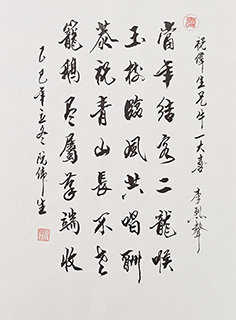 祝偉生兄牛一大喜 李烈聲
當年結客二龍喉
玉樹臨風共唱酬
恭祝青山長不老
籠鵝尽屬筆端收
乙巳年立冬 阮偉生